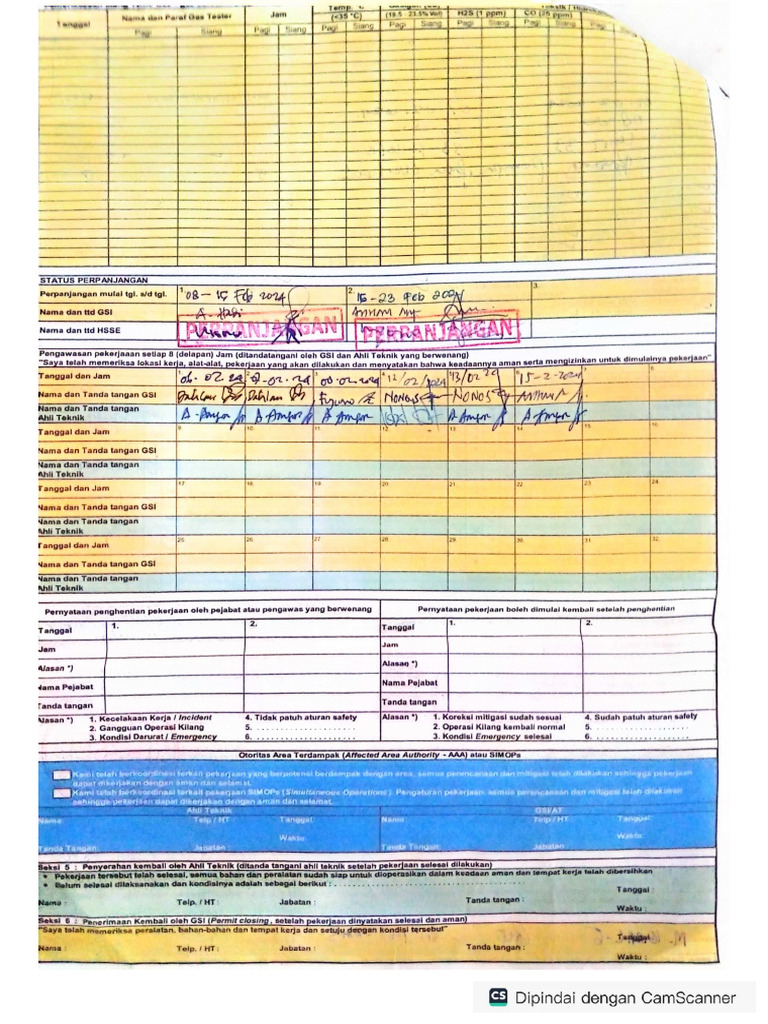 Tanggal Nama dan Paraf Gas Tester Jam Temp. °C (<35 °C) (19.5 - 23.5% Vol) H2S (1 ppm) CO (25 ppm)
Pagi Siang Pagi Siang Pagi Siang Pagi Siang Pagi Siang Pagi Siang
STATUS PERPANJANGAN
Perpanjangan mulai tgl. s/d tgl. 1. 08 - 15 Feb 2024 2. 15 - 23 Feb 2024 3.
Nama dan ttd GSI
Nama dan ttd HSSE PERPANJANGAN PERPANJANGAN
Pengawasan pekerjaaan setiap 8 (delapan) Jam (ditandatangani oleh GSI dan Ahli Teknik yang berwenang)
"Saya telah memeriksa lokasi kerja, alat-alat, pekerjaan yang akan dilakukan dan menyatakan bahwa keadaannya aman serta mengizinkan untuk dimulainya pekerjaan"
Tanggal dan Jam 12/02/2024 13/02 24 15-2-2024
Nama dan Tanda tangan GSI Dahlan Dahlan NONOS NONOS
Nama dan Tanda tangan
Ahli Teknik
Tanggal dan Jam 9 10 11 12 13 14 15 16
Nama dan Tanda tangan GSI
Nama dan Tanda tangan
Ahli Teknik
Tanggal dan Jam 17 18 19 20 21 22 23 24
Nama dan Tanda tangan GSI
Nama dan Tanda tangan
Ahli Teknik
Tanggal dan Jam 25 26 27 28 29 30 31 32
Nama dan Tanda tangan GSI
Nama dan Tanda tangan
Ahli Teknik
Pernyataan penghentian pekerjaan oleh pejabat atau pengawas yang berwenang
Pernyataan pekerjaan boleh dimulai kembali setelah penghentian
Tanggal 1. 2. Tanggal 1. 2.
Jam Jam
Alasan *) Alasan *)
Nama Pejabat Nama Pejabat
Tanda tangan Tanda tangan
Alasan *) 1. Kecelakaan Kerja / Incident 4. Tidak patuh aturan safety Alasan *) 1. Koreksi mitigasi sudah sesuai 4. Sudah patuh aturan safety
2. Gangguan Operasi Kilang 5. 2. Operasi Kilang kembali normal 5.
3. Kondisi Darurat / Emergency 6. 3. Kondisi Emergency selesai 6.
Otoritas Area Terdampak (Affected Area Authority - AAA) atau SIMOPs
Kami telah berkoordinasi terkait pekerjaan yang berpotensi berdampak dengan area, semua perencanaan dan mitigasi telah dilakukan sehingga pekerjaan
dapat dikerjakan dengan aman dan selamat.
Kami telah berkoordinasi terkait pekerjaan SIMOPs (Simultaneous Operations). Pengaturan pekerjaan, semua perencanaan dan mitigasi telah dilakukan
sehingga pekerjaan dapat dikerjakan dengan aman dan selamat.
Ahli Teknik
Nama Telp / HT Tanggal: Nama Telp / HT Tanggal:
Waktu: Waktu:
Tanda Tangan: Jabatan : Tanda Tangan: Jabatan :
Seksi 5 : Penyerahan kembali oleh Ahli Teknik (ditanda tangani ahli teknik setelah pekerjaan selesai dilakukan)
• Pekerjaan tersebut telah selesai, semua bahan dan peralatan sudah siap untuk dioperasikan dalam keadaan aman dan tempat kerja telah dibersihkan
• Belum selesai dilaksanakan dan kondisinya adalah sebagai berikut :
Tanggal :
Nama : Telp. / HT : Jabatan : Tanda tangan :
Waktu :
Seksi 6 : Penerimaan Kembali oleh GSI (Permit closing, setelah pekerjaan dinyatakan selesai dan aman)
"Saya telah memeriksa peralatan, bahan-bahan dan tempat kerja dan setuju dengan kondisi tersebut"
Tanggal
Nama : Telp. / HT : Jabatan : Tanda tangan :
Waktu :
CS Dipindai dengan CamScanner